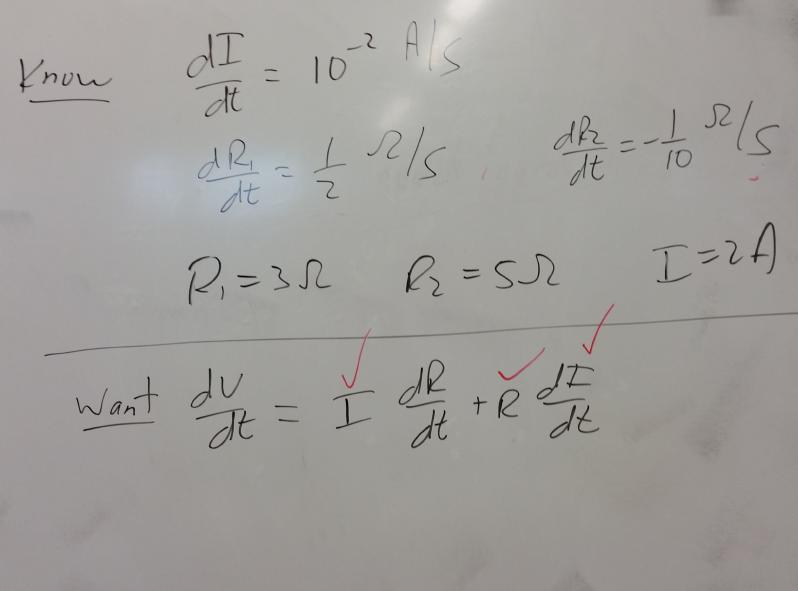 Know dI/dt = 10^-2 A/S
dR₁/dt = 1/2 Ω/S dR₂/dt = -1/10 Ω/S
R₁ = 3Ω R₂ = 5Ω I = 2A
Want dV/dt = I dR/dt + R dI/dt